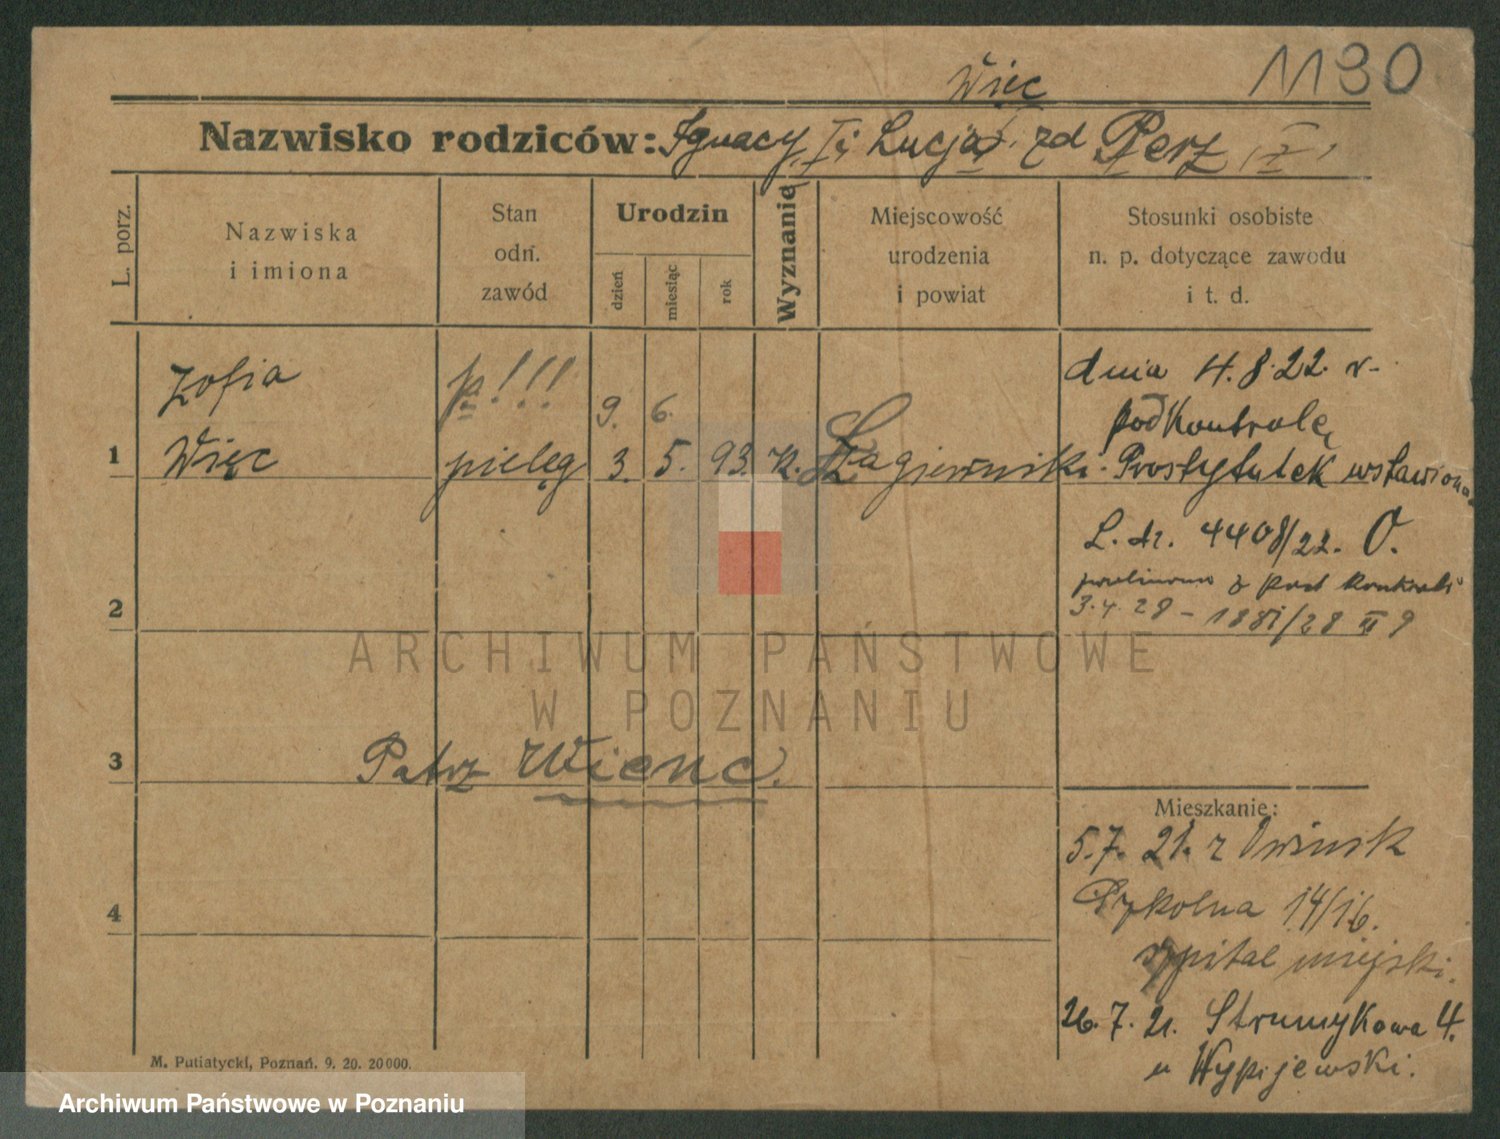 1130
Więc
Nazwisko rodziców: Ignacy i Łucja zd Perz
L. porz.
Nazwiska
i imiona
Stan
odn.
zawód
Urodzin
dzień
miesiąc
rok
Wyznanie
Miejscowość
urodzenia
i powiat
Stosunki osobiste
n. p. dotyczące zawodu
i t. d.
Zofia
!!!
9. 6.
dnia 4.8.22. r.
pod Kontrolę
1 Więc pielęg 3. 5. 93. K. Łagiewniki. Prostytutek wstawiona
L. dz. 4408/22. O.
z pod kontroli
2
3.4.28 - 1881/28 II 9
3
Patrz Wienc.
Mieszkanie:
5.7. 21. z Owinsk
4
Szkolna 14/16.
szpital miejski.
26.7.21. Strumykowa 4.
u Wypijewski.
M. Putiatycki, Poznań. 9. 20. 20000.
ARCHIWUM PAŃSTWOWE
W POZNANIU
Archiwum Państwowe w Poznaniu